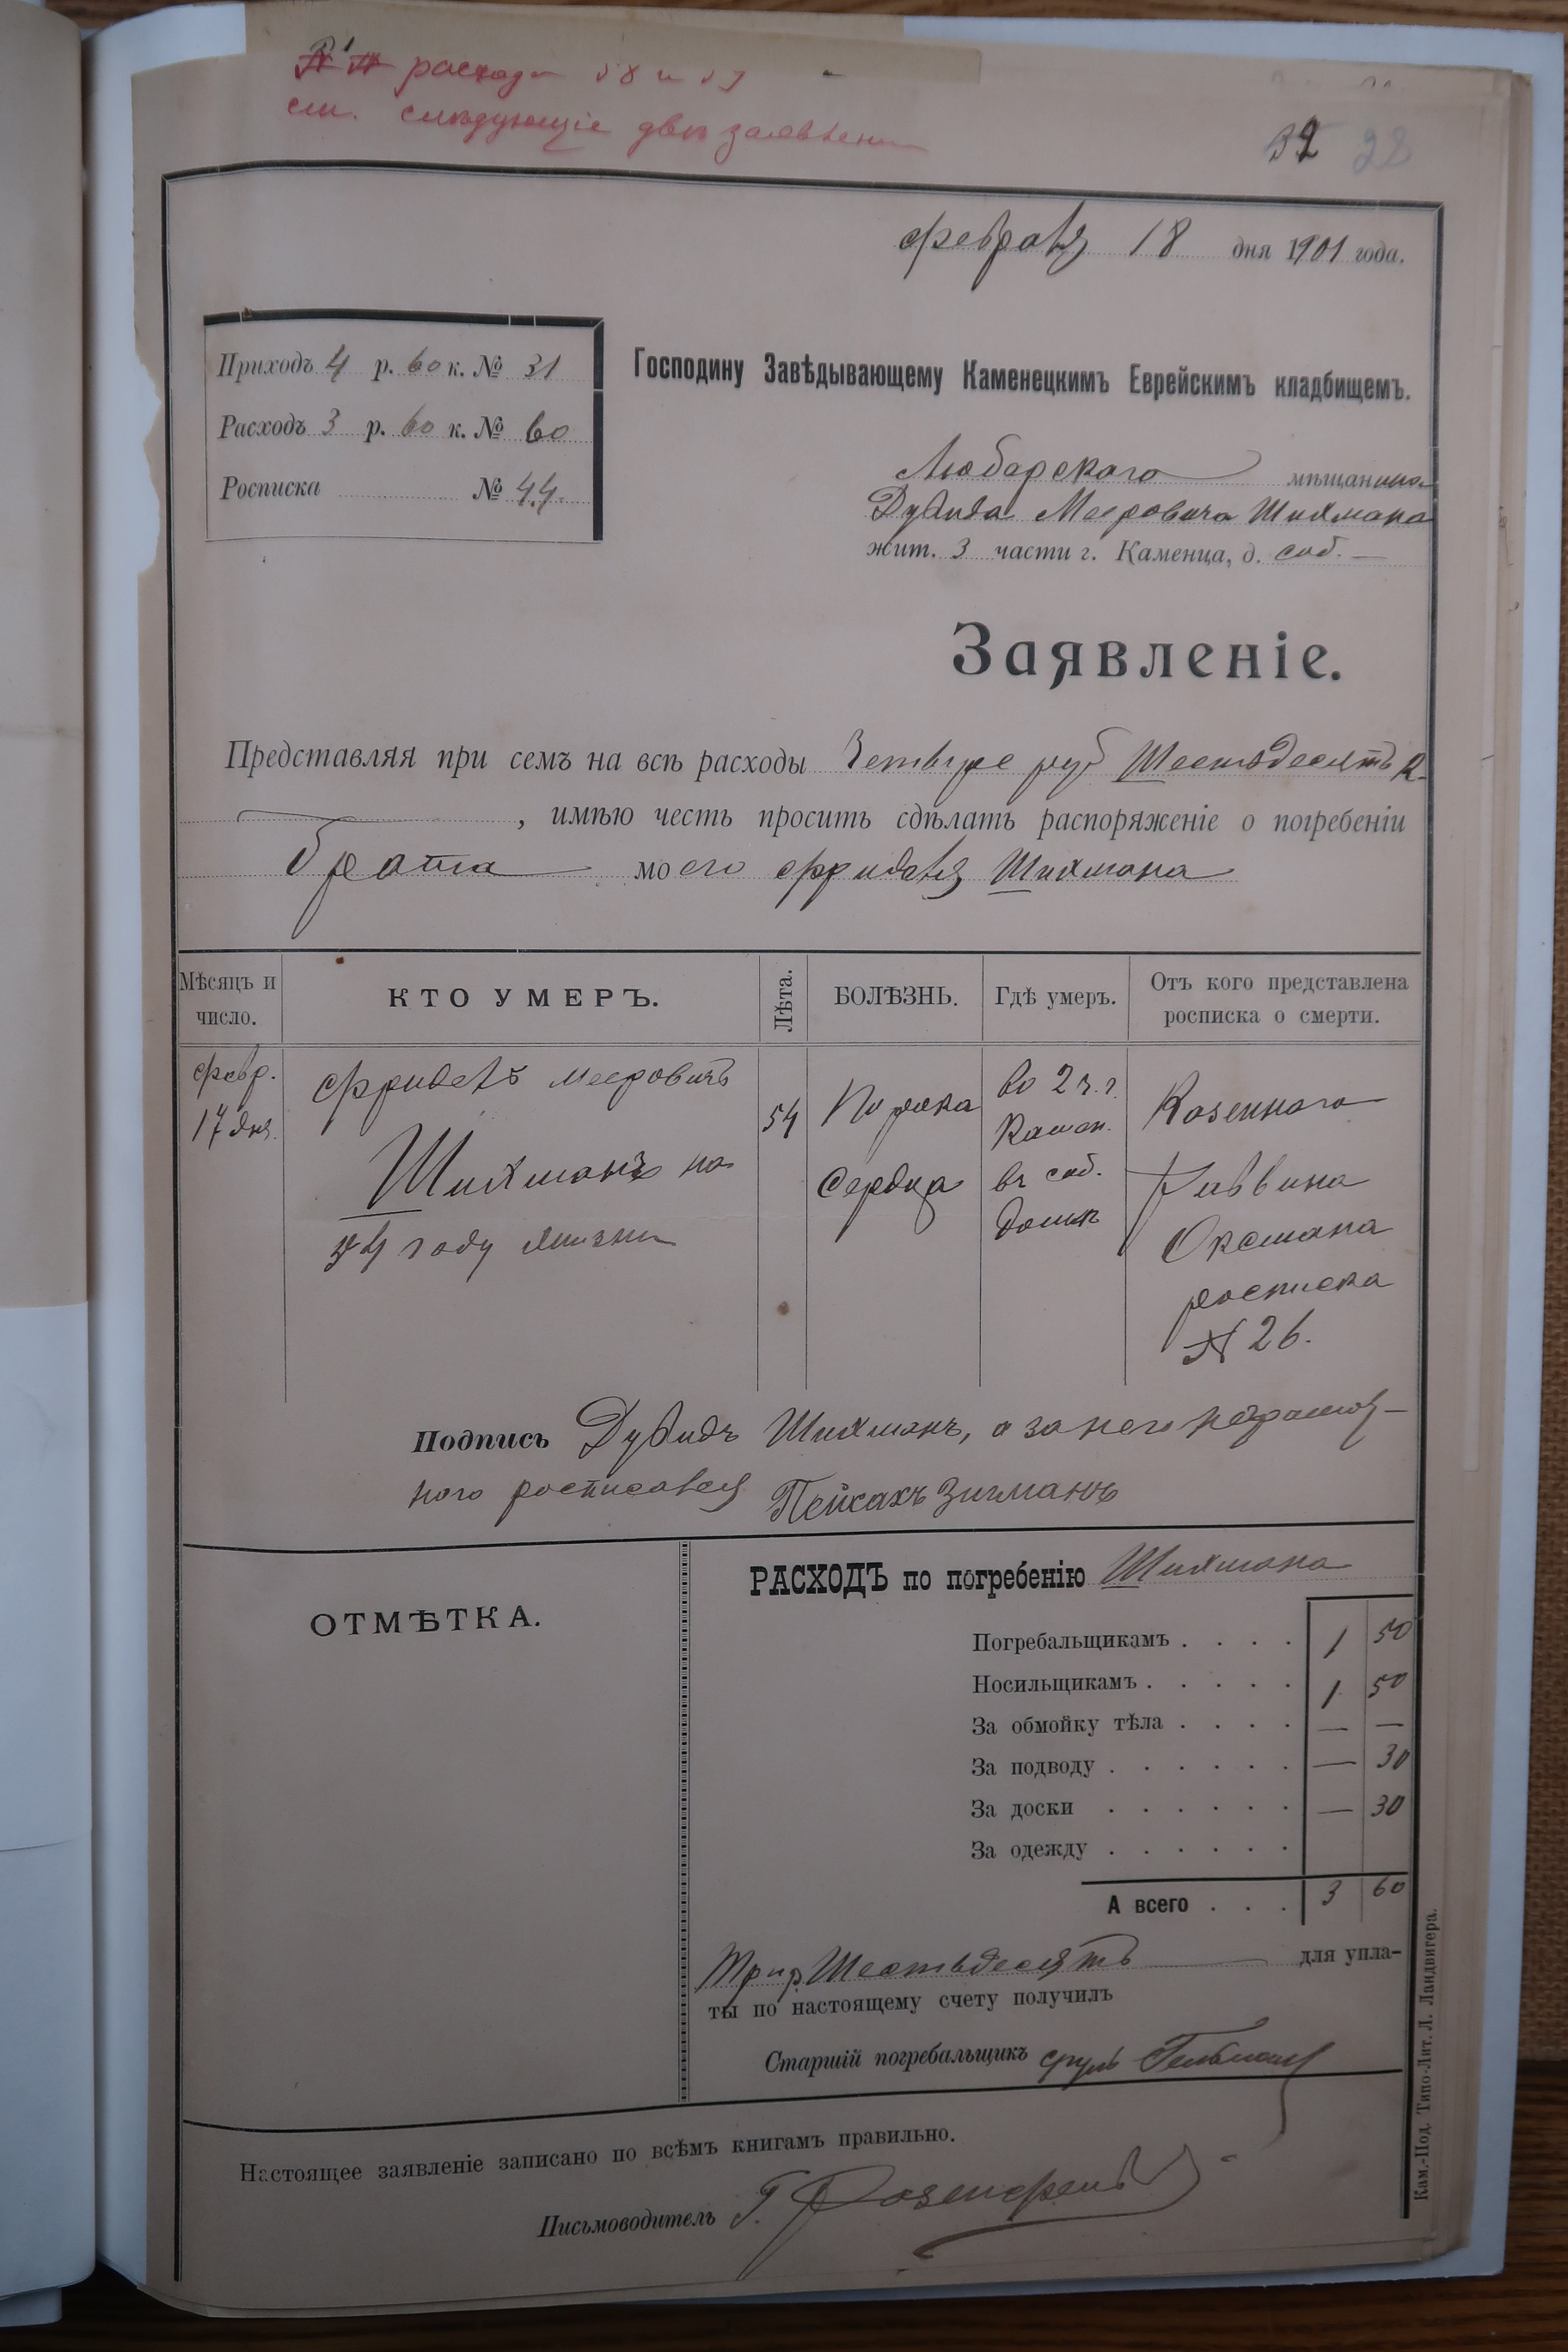 расхода 58 и 59
см. слѣдующіе двѣ заявленія
32 28
февраля 18 дня 1901 года.
Приходъ 4 р. 60 к. № 31
Расходъ 3 р. 60 к. № 60
Росписка № 44.
Господину Завѣдывающему Каменецкимъ Еврейскимъ кладбищемъ.
Любарского мѣщанина
Дувида Мееровича Шихмана
жит. 3 части г. Каменца, д. соб.
Заявленіе.
Представляя при семъ на всѣ расходы Четыре руб Шестьдесятъ к.
, имѣю честь просить сдѣлать распоряженіе о погребеніи
брата моего Фриделя Шихмана
Мѣсяцъ и число.
КТО УМЕРЪ.
Лѣта.
БОЛѢЗНЬ.
Гдѣ умеръ.
Отъ кого представлена росписка о смерти.
Февр.
17 дня.
Фридель Мееровичъ
Шихманъ на
54 году жизни
54
Порока
Сердца
во 2 ч. г.
Камен.
въ соб.
домѣ
Казеннаго
Раввина
Оксмана
росписка
№ 26.
Подпись Дувидъ Шихманъ, а за него неграмот-
ного росписался Пейсахъ Зигманъ
ОТМѢТКА.
РАСХОДЪ по погребенію Шихмана
Погребальщикамъ . . . . 1 50
Носильщикамъ . . . . . 1 50
За обмойку тѣла . . . . — —
За подводу . . . . . . — 30
За доски . . . . . . — 30
За одежду . . . . . .
А всего . . . 3 60
Три р Шестьдесятъ для упла-
ты по настоящему счету получилъ
Старшій погребальщикъ Сруль Гельман
Настоящее заявленіе записано по всѣмъ книгамъ правильно.
Письмоводитель Г. Розенфельд
Кам.-Под. Типо-Лит. Л. Ландвигера.